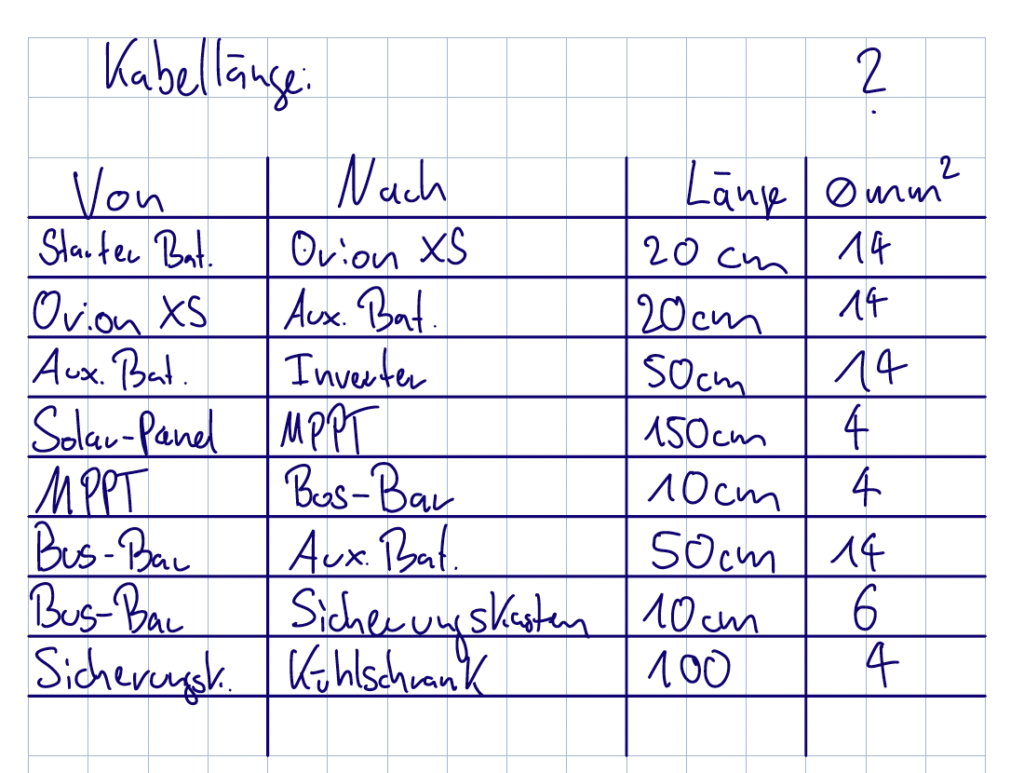 Kabellänge: ?
Von Nach Länge ømm²
Starter Bat. Orion XS 20 cm 14
Orion XS Aux. Bat. 20cm 14
Aux. Bat. Inverter 50cm 14
Solar-Panel MPPT 150cm 4
MPPT Bus-Bar 10cm 4
Bus-Bar Aux. Bat. 50cm 14
Bus-Bar Sicherungskasten 10cm 6
Sicherungsk. Kühlschrank 100 4